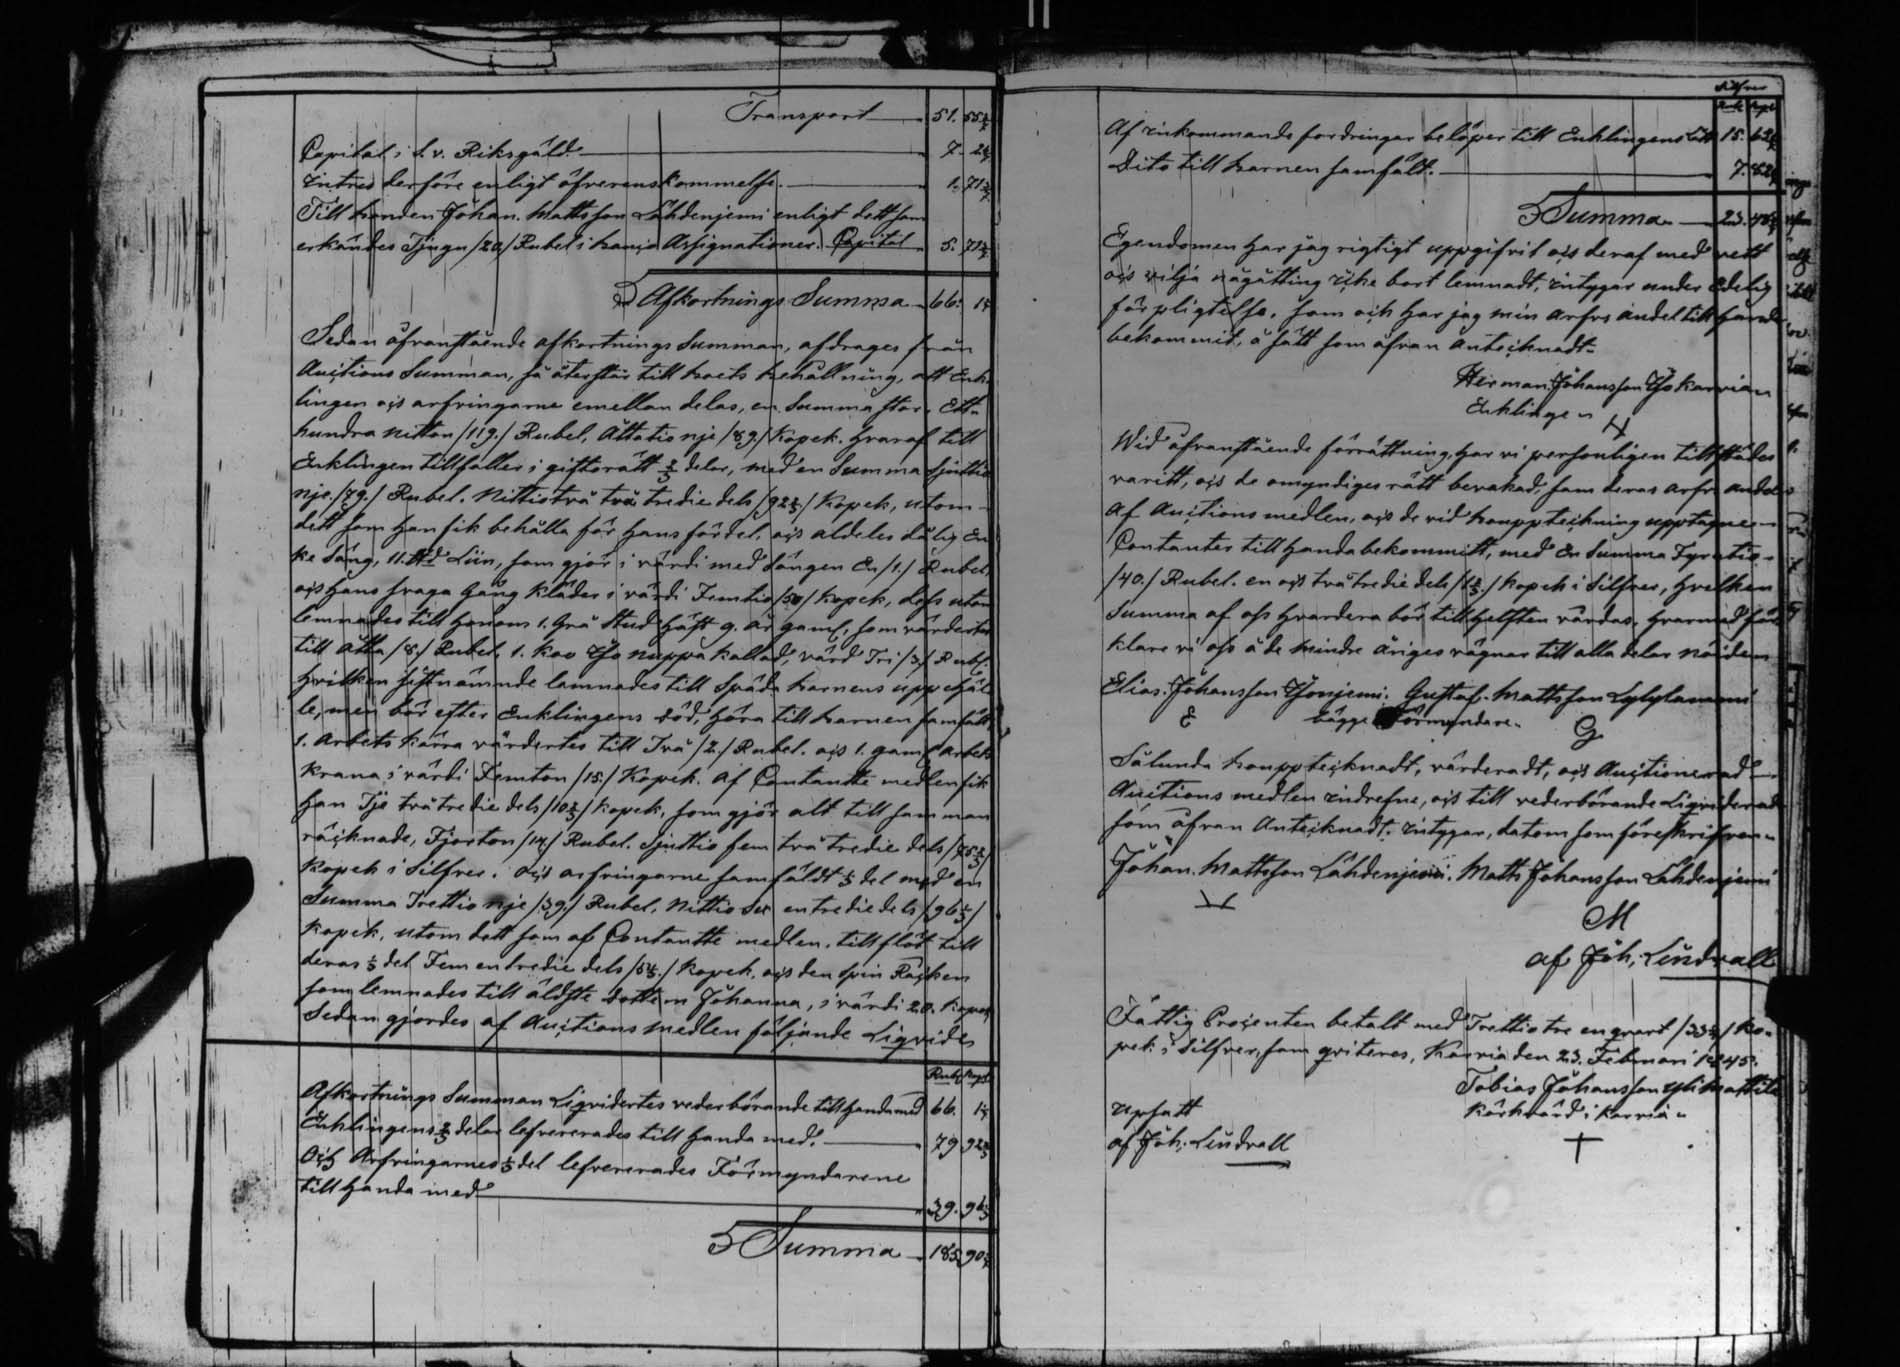 Transport 51. 55 2/7
Capital i d. v. Riksgäld. 7. 2 6/7
Intres derföre enligt öfverenskommelse. 1. 71 3/7
Till bonden Johan Mattsson Lähdenjemi enligt dett som
erkändes Tjugu /20/ Rubel i banco Assignationer. Capital 5. 71 3/7
Afkortnings Summa 66.
Sedan ofvanstående afkortnings Summan, afdrages från
Auctions Summan, så återstår till boets behållning, att Enk-
lingen och arfvingarne emellan delas, en Summa stor. Ett
hundra nitton /119./ Rubel, Åttationje /89./ Kopek. hvaraf till
Enklingen tillfaller i giftorätt 2/3 delar, med en Summa Sjuttio
nje /79./ Rubel. Nittiotvå två tredie dels /92 2/3/ Kopek, utom
dett som han fik behålla för hans fördel, och aldeles dålig En-
ke Säng, 11. Liin, som gjör i värdi med Sängen En /1./ Rubel,
och hans svaga Gång kläder i värdi Femtio /50/ Kopek, dess utom
lemnades till honom 1. Grå Stud häst 9. år gaml, som värdertes
till Åtta /8/ Rubel, 1. koo kallad, värd Tri /3/ Rubl.
hvilken sistnämnde lemnades till Späda barnens uppehäl-
le, men bör efter Enklingens död, höra till barnen samfält,
1. Arbets kärra värdertes till Två /2./ Rubel. och 1. gaml arbets
krana i värdi Femton /15/ Kopek. Af Contantte medlen fik
han Tje två tredie dels /10 2/3/ Kopek, som gjör alt till samman
räcknade, Fjorton /14/ Rubel. Sjuttio fem två tredie dels /75 2/3/
Kopek i Silfver. Och arfvingarne samfäldt 1/3 del med en
Summa Trettio nje /39./ Rubel, Nittio Sex en tredie dels /96 1/3/
Kopek, utom dett som af Contantte medlen, tillflöt till
deras 1/3 del Fem en tredie dels /5 1/3./ Kopek, och den Spin Rocken
som lemnades till äldste dottern Johanna, i värdi 20. Kopek
Sedan gjordes af Auctions medlen följande Liqvider
Rubl Kopk
Afkortnings Summan Liqvidertes vederbörande tillhanda med 66.
Enklingens 2/3 delar lefvererades till handa med. 79 92 2/3
Och Arfvingarnes 1/3 del lefvererades Förmyndarene
till handa med 39. 96 1/3
Summa 185. 90
Silfver
Rub. Kopk
Af inkommande fordringar belöper till Enklingens Lått 15.
Dito till barnen samfält. 7. 82
Summa 23.
Egendomen har jag rigtigt uppgifvit och deraf med vett
och vilja någåtting icke bort lemnadt, intygar under Edelig
förpligtelse, som och har jag min arfvs andel till handa
bekommit, å sätt som ofvan antecknadt.
Herman Johansson Karvian
Enklinge
Wid ofvanstående förrättning, har vi personligen tillstädes
varitt, och de omyndiges rätt bevakad, som deras arfvs andel
af Auctions medlen, och de vid boupptekning upptagne
Contanter till handa bekommitt, med En Summa Fyratio
/40./ Rubel. en och två tredie dels /1 2/3./ Kopek i Silfver, hvilken
Summa af oss hvardera bör till helften vårdas, hvarmed för
klare vi oss å de mindre åriges vägnar till alla delar nöiden
Elias Johansson Gustaf Mattsson
E bägge Förmyndare G
Sålunda bouppteknadt, värderadt, och Auctionerad
Auctions medlen indrefne, och till vederbörande Liqviderade
som ofvan antecknadt, intygar, datom som föreskrifven
Johan Mattsson Lähdenjemi. Matts Johansson Lähdenjemi
M
af Joh. Lindvall
Fattig Procenten betalt med Trettiotre en qvart /33 1/4/ Ko-
pek i Silfver, som qviteres, Karvia den 23. Februari 1845.
Tobias Johansson Ylimattila
Kÿrkvärd i Karvia
Upsatt
af Joh. Lindvall